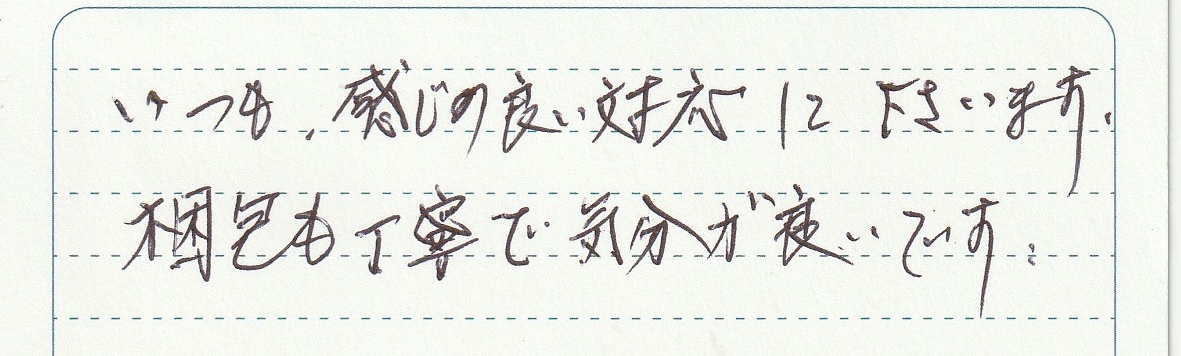 いつも、感じの良い対応に下さいます。
梱包も丁寧で気分が良いです。